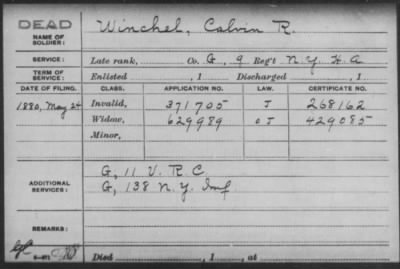 DEAD
NAME OF SOLDIER: Winchel, Calvin R.
SERVICE: Late rank, Co. G, 9 Reg't N.Y. H.A
TERM OF SERVICE: Enlisted , 1 Discharged , 1
DATE OF FILING. CLASS. APPLICATION NO. LAW. CERTIFICATE NO.
1880, May 24 Invalid, 371705 J 268162
Widow, 629989 O J 429085
Minor,
ADDITIONAL SERVICES: G, 11 V. R. C
G, 138 N.Y. Inf
REMARKS:
Died , 1 , at